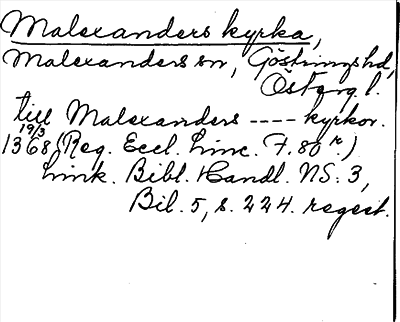 Malexanders kyrka,
Malexanders sn, Göstringshd,
Östergl.
till Malexanders ---- kyrkor.
19/3
1368 (Reg. Eccl. Linc. F. 80 r)
Link. Bibl. Handl. NS: 3,
Bil. 5, s. 224. regest.